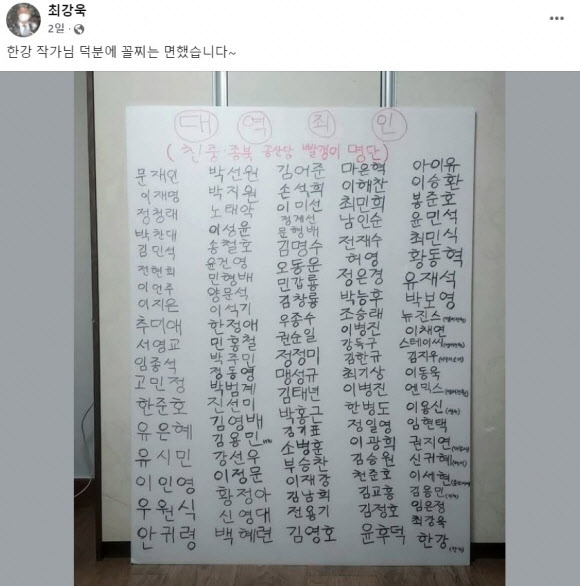 최강욱
2일
한강 작가님 덕분에 꼴찌는 면했습니다~
대 역 죄 인
(친중·종북 공산당 빨갱이 명단)
문재인
이재명
정청래
박찬대
김민석
전현희
이언주
이지은
추미애
서영교
임종석
고민정
한준호
유은혜
유시민
이인영
우원식
안귀령
박선원
박지원
노태악
이성윤
송철호
윤건영
민형배
양문석
이석기
한정애
민홍철
박주민
정동영
박범계
진선미
김영배
김용민
강선우
이정문
황정아
신영대
백혜련
김어준
손석희
이미선
정계선
문형배
김명수
오동운
민갑룡
김창룡
우종수
권순일
정정미
맹성규
김태년
박홍근
소병훈
부승찬
이재강
김남희
전용기
김영호
마은혁
이해찬
최민희
남인순
전재수
허영
정은경
박능후
조승래
이병진
강득구
김한규
최기상
이병진
한병도
정일영
이광희
김승원
천준호
김교흥
김정호
윤후덕
아이유
이승환
봉준호
윤민석
최민식
황동혁
유재석
박보영
뉴진스
이채연
스테이씨
김지우
이동욱
엔믹스
이용신
임현택
권지연
신귀혜
이세현
김용민
임은정
최강욱
한강